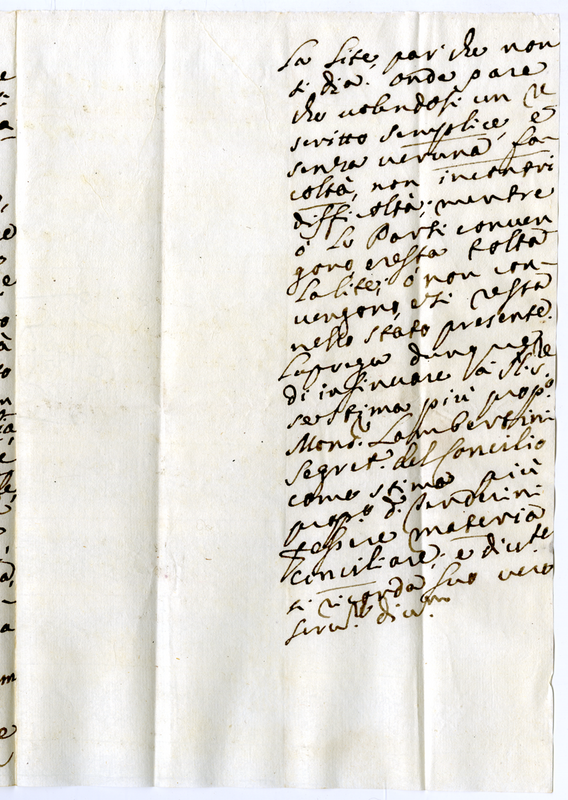 La Lite, par che non
si dia: onde pare
che volendosi un
scritto semplice, e
senza veruna fa-
coltà, non incontri
difficoltà; mentre
ò Le Parti conven
gono, e resta tolta
La lite; ò non con-
vengono, e si resta
nello stato presente.
La prega dunque
di insinuare
se stima più prop.o
Mons.r Lambertini
Segret.o del Concilio
come stima più
prop.o di
essere materia
Conciliare; e di
si ricorda suo vero
serv.